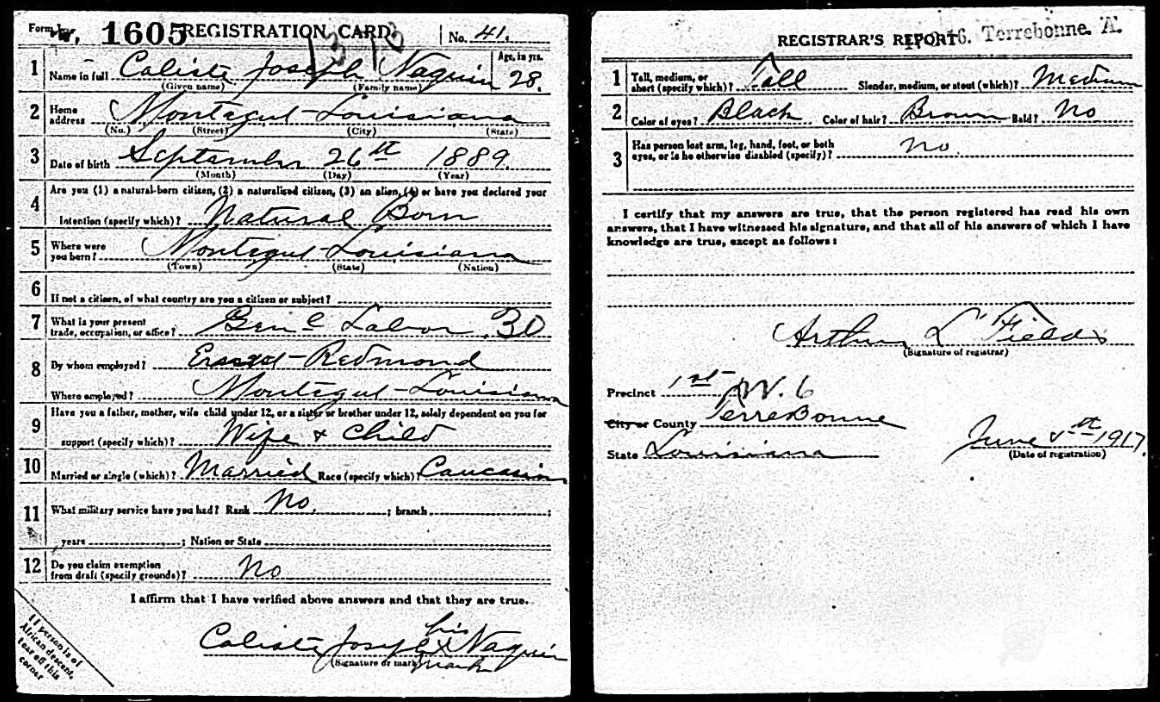 Form 1605 REGISTRATION CARD No. 41.
1 Name in full Caliste Joseph Naquin Age, in yrs. 28.
(Given name) (Family name)
2 Home address Montegut - Louisiana
(No.) (Street) (City) (State)
3 Date of birth September 26th 1889.
(Month) (Day) (Year)
Are you (1) a natural-born citizen, (2) a naturalized citizen, (3) an alien, (4) or have you declared your
4 intention (specify which)? Natural Born
5 Where were you born? Montegut - Louisiana
(Town) (State) (Nation)
6 If not a citizen, of what country are you a citizen or subject?
7 What is your present trade, occupation, or office? Gen'l Labor 30
8 By whom employed? Redmond
Where employed? Montegut - Louisiana
9 Have you a father, mother, wife child under 12, or a sister or brother under 12, solely dependent on you for
support (specify which)? Wife & Child
10 Married or single (which)? Married Race (specify which)? Caucasian
11 What military service have you had? Rank No. ; branch ;
years ; Nation or State
12 Do you claim exemption from draft (specify grounds)? No
I affirm that I have verified above answers and that they are true.
his
Caliste Joseph x Naquin
(Signature or mark) mark
If person is of
African descent,
tear off this
corner
REGISTRAR'S REPORT Terrebonne. A.
1 Tall, medium, or short (specify which)? Tall Slender, medium, or stout (which)? Medium
2 Color of eyes? Black Color of hair? Brown Bald? No
3 Has person lost arm, leg, hand, foot, or both
eyes, or is he otherwise disabled (specify)? no.
I certify that my answers are true, that the person registered has read his own
answers, that I have witnessed his signature, and that all of his answers of which I have
knowledge are true, except as follows:
Arthur L Fields
(Signature of registrar)
Precinct 1st W. 6
City or County TerreBonne
State Louisiana June 5th 1917.
(Date of registration)